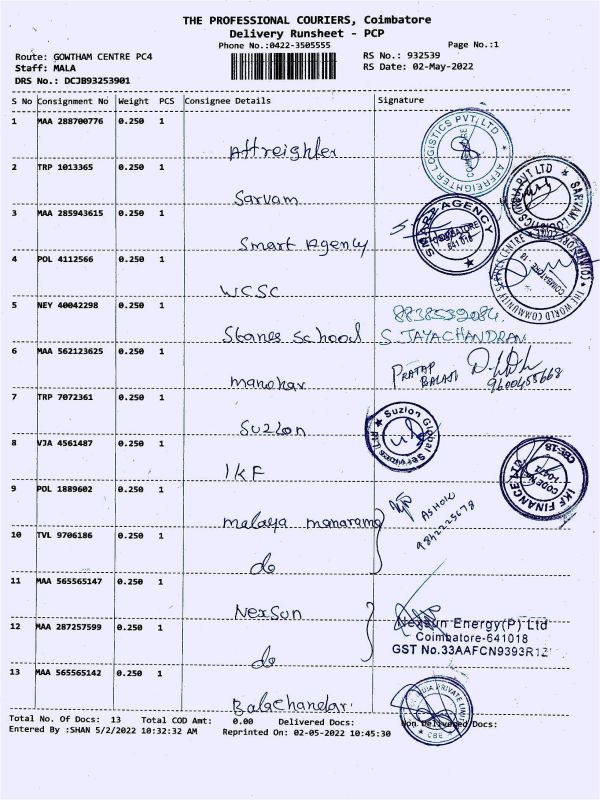 THE PROFESSIONAL COURIERS, Coimbatore
Delivery Runsheet - PCP
Phone No.:0422-3505555
Page No.:1
Route: GOWTHAM CENTRE PC4
RS No.: 932539
Staff: MALA
RS Date: 02-May-2022
DRS No.: DCJB93253901
S No Consignment No Weight PCS Consignee Details Signature
1 MAA 288700776 0.250 1
Affreighter
AFFREIGHTER LOGISTICS PVT. LTD
2 TRP 1013365 0.250 1
Sarvam
SARVAM LOGISTICS INDIA PVT LTD
3 MAA 285943615 0.250 1
Smart Agency
SMART AGENCY
COIMBATORE
641 018
4 POL 4112566 0.250 1
WCSC
THE WORLD COMMUNITY SERVICE CENTRE
COIMBATORE - 18
5 NEY 40042298 0.250 1
Stanes School
8838532084
S JAYACHANDRAN
6 MAA 562123625 0.250 1
manohar
PRATAP
BALAJI
9600455668
7 TRP 7072361 0.250 1
Suzlon
Suzlon Global Services
8 VJA 4561487 0.250 1
IKF
IKF FINANCE LTD
CBE-18
CODE NO
9 POL 1889602 0.250 1
malaya manarama
ASHOK
9842225678
10 TVL 9706186 0.250 1
do
11 MAA 565565147 0.250 1
NexSun
NexSun Energy(P) Ltd
Coimbatore-641018
GST No.33AAFCN9393R1Z
12 MAA 287257599 0.250 1
do
13 MAA 565565142 0.250 1
Balachandar
INDIA PRIVATE LIMITED
CBE
Total No. Of Docs: 13 Total COD Amt: 0.00 Delivered Docs: Non Delivered Docs:
Entered By :SHAN 5/2/2022 10:32:32 AM Reprinted On: 02-05-2022 10:45:30